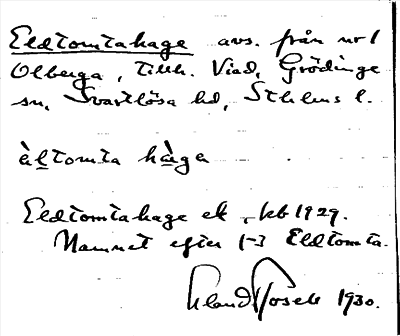 Eldtomtahage avs. från nr 1
Olberga, tillh. Viad, Grödinge
sn, Svartlösa hd, Sthlms l.
èl̲tomta hàga
Eldtomtahage ek, kb 1929.
Namnet efter f-3 Eldtomta.
1930.